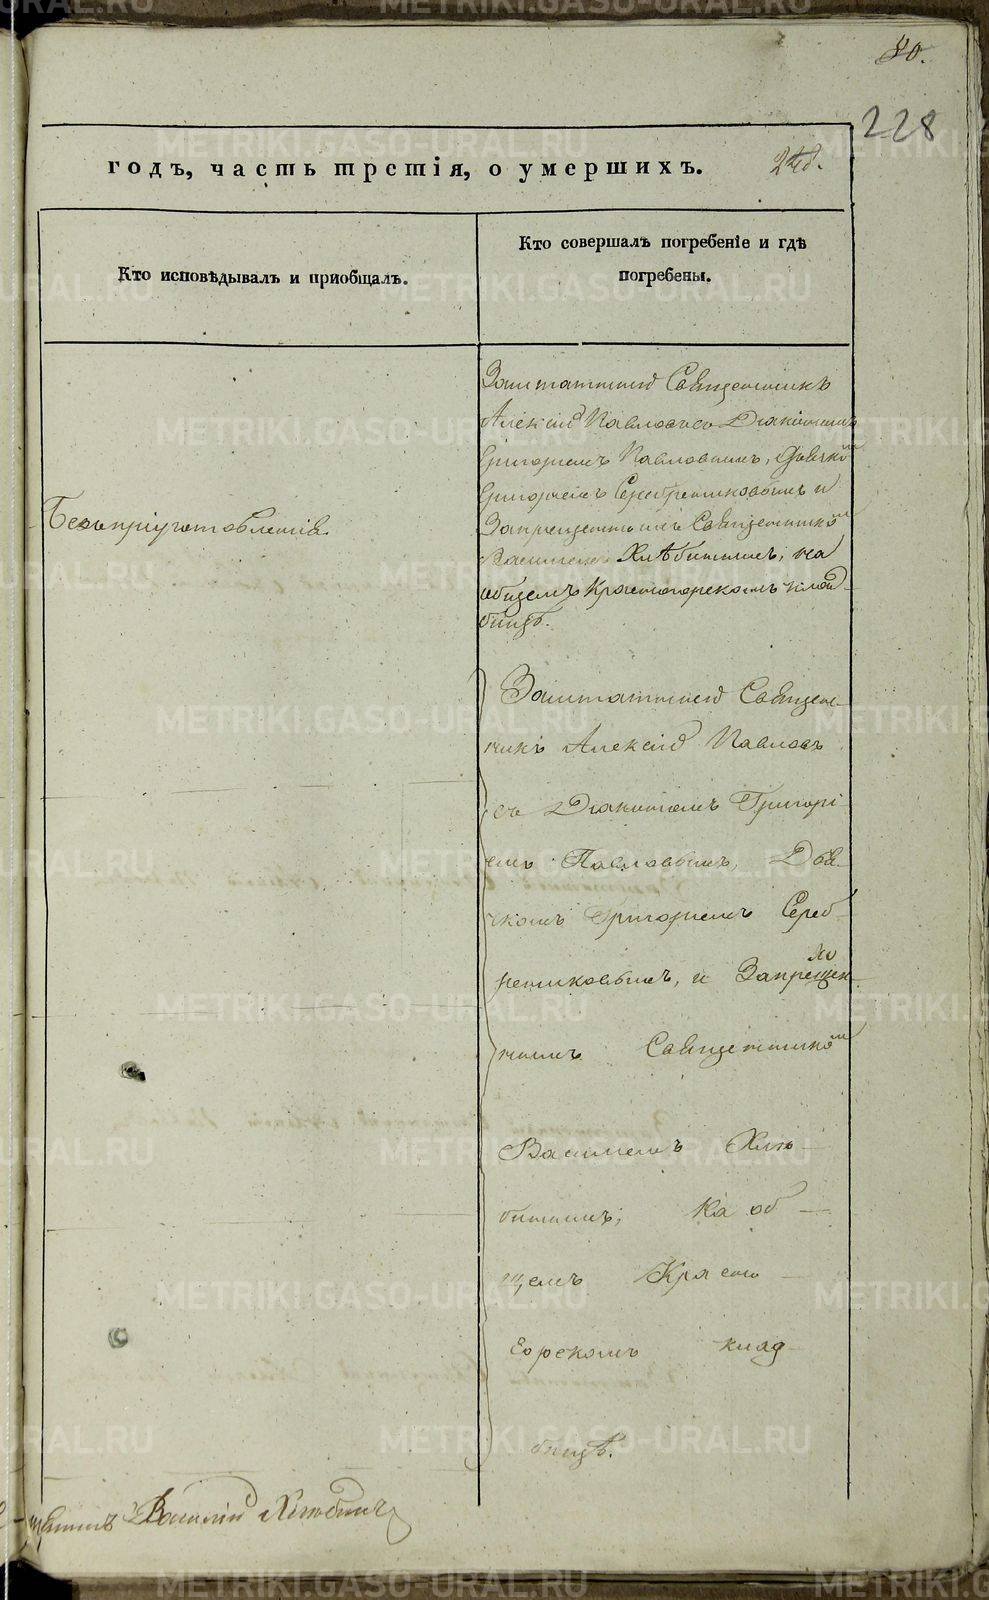 40.
228
годъ, часть третія, о умершихъ.
248.
Кто исповѣдывалъ и приобщалъ.
Кто совершалъ погребеніе и гдѣ
погребены.
Заштатный Священникъ
Алексій Павловъ съ Діакономъ
Григоріемъ Павловымъ, Дьячко̃м
Григоріемъ Серебренниковымъ и
Безъ приуготовленія.
Запрещеннымъ Священнико̃м
Василіемъ Хлѣбинымъ, на
общемъ Красногорскомъ клад-
бищѣ.
Заштатный Священ-
никъ Алексій Павловъ
съ Діакономъ Григорі-
емъ Павловымъ, Дья-
чкомъ Григоріемъ Сереб-
ренниковымъ, и Запрещен-
нымъ Священнико̃м
Василіемъ Хлѣ-
бинымъ, на об-
щемъ Красно-
горскомъ клад-
бищѣ.
Василій Хлѣбинъ
METRIKI.GASO-URAL.RU